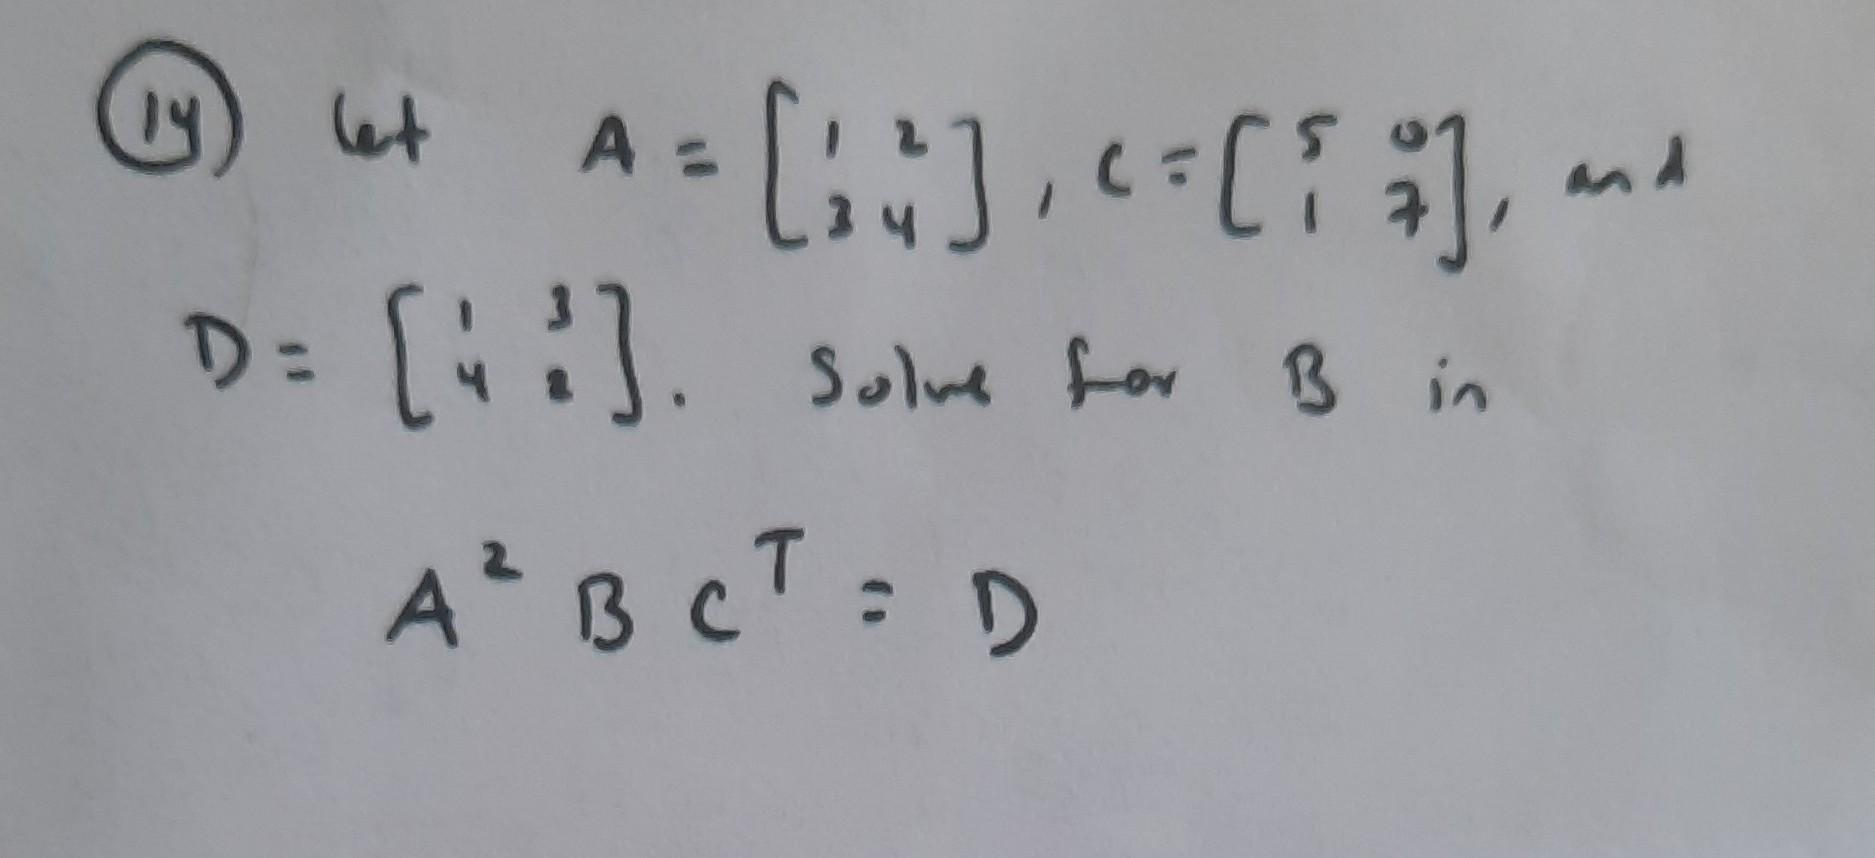 (14) Let A = [1 2; 3 4], C = [5 0; 1 7], and
D = [1 3; 4 2]. Solve for B in
A² B Cᵀ = D